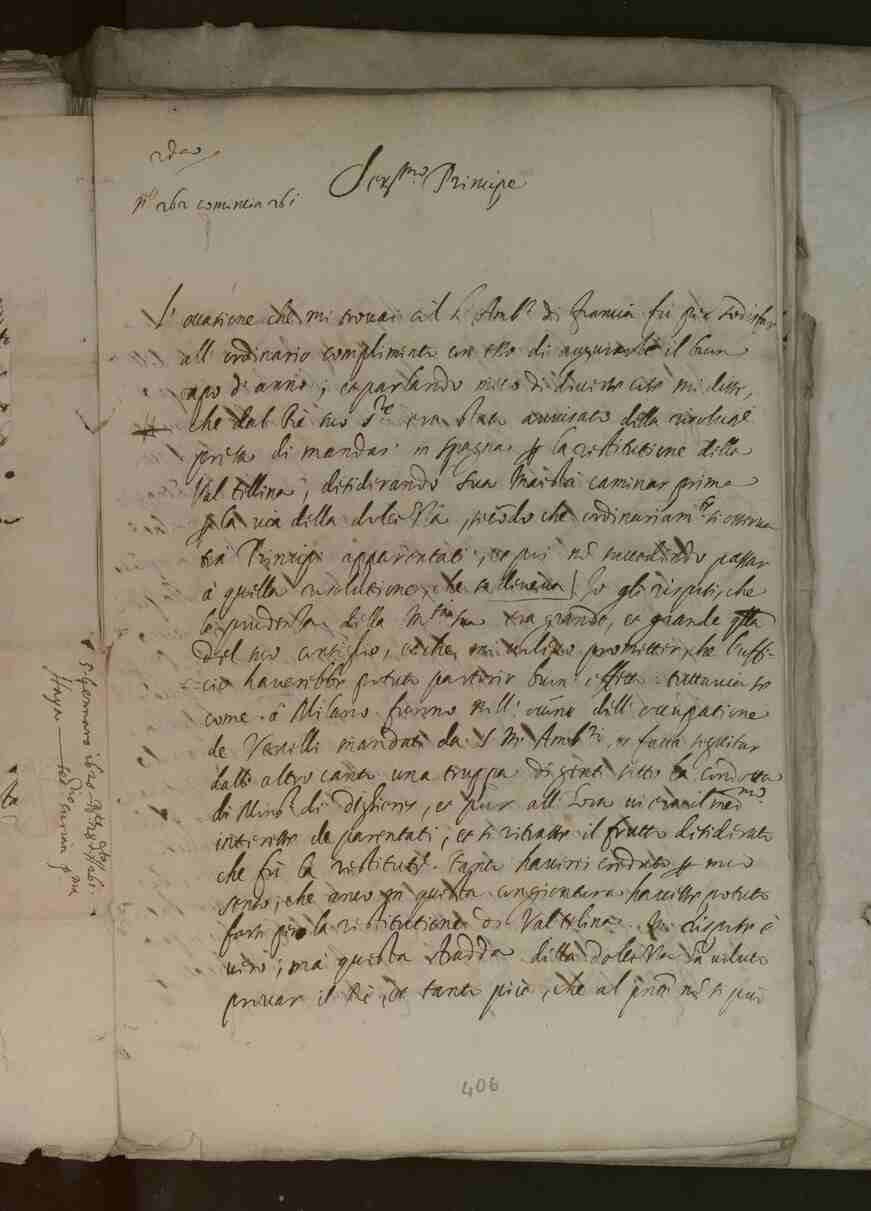 Ser.mo Principe
n.o 262 comincia 261
L'occasione che mi trovai col S.r Amb.r di Francia fu per sodisfar
all'ordinario complimento con esso di augurarle il buon
capo d'anno; et parlando meco di diverse cose mi disse,
che dal Rè suo S.re era stato avvisato della
presa di mandar in Spagna per la restitutione della
Valtellina, desiderando Sua Maestà caminar prima
per la via della dolcezza, secondo che ordinariam.te si osserva
trà Principi apparentati, et poi nõ succedendo passar
à quella resolutione, che Io gli risposi, che
la prudenza della M.tà sua era grande, et grande q.lla
del suo conseglio, et che mi volevo prometter, che l'uffi-
cio haverebbe potuto partorir buon effetto tuttavia se
come à Milano furono nell' dell'occupatione
de Vercelli mandati da S. M. Amb.ri, et faceva seguitar
dall'altro canto una truppa di gente sotto la condotta
di Mons.r di Dighieres, et pur all'hora vi era il med.mo
interesse de parentati, et si ritrasse il frutto desiderato
che fù la restitut.e. Tanto haverei creduto per mio
senso, che anco in questa congiontura havesse potuto
farsi per la restitutione di Valtelina. Mi rispose è
vero; mà questa strada della dolcezza hà voluto
provar il Rè, et tanto più, che al pñte nõ si può
5 Gennaro 1620
Haya
406